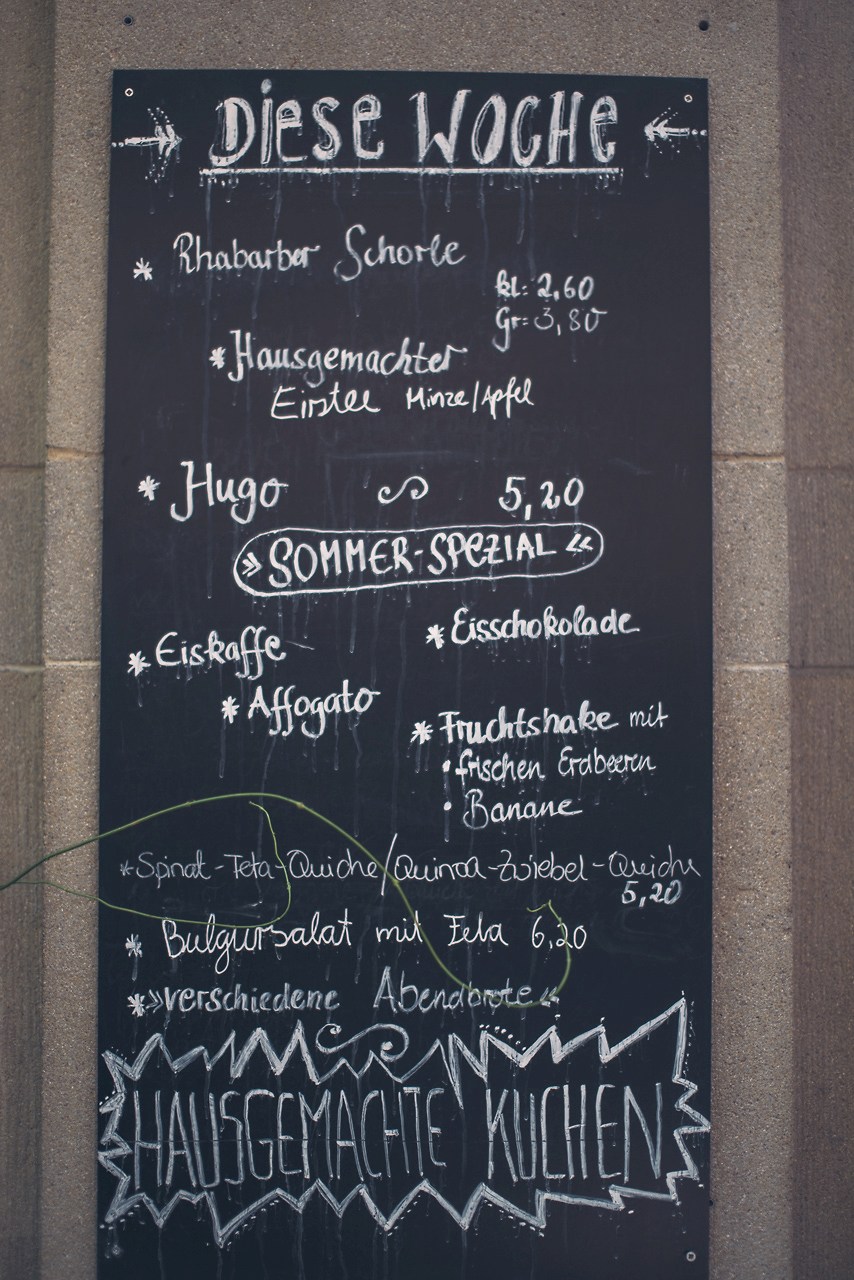 DiESE WOCHE
* Rhabarber Schorle
kl: 2,60
Gr: 3,80
* Hausgemachter
Eistee Minze/Apfel
* Hugo 5,20
» SOMMER-SPEZIAL «
* Eiskaffe
* Eisschokolade
* Affogato
* Fruchtshake mit
• frischen Erdbeeren
• Banane
* Spinat-Feta-Quiche/Quinoa-Zwiebel-Quiche
5,20
* Bulgursalat mit Feta 6,20
* »verschiedene Abendbrote«
HAUSGEMACHTE KUCHEN